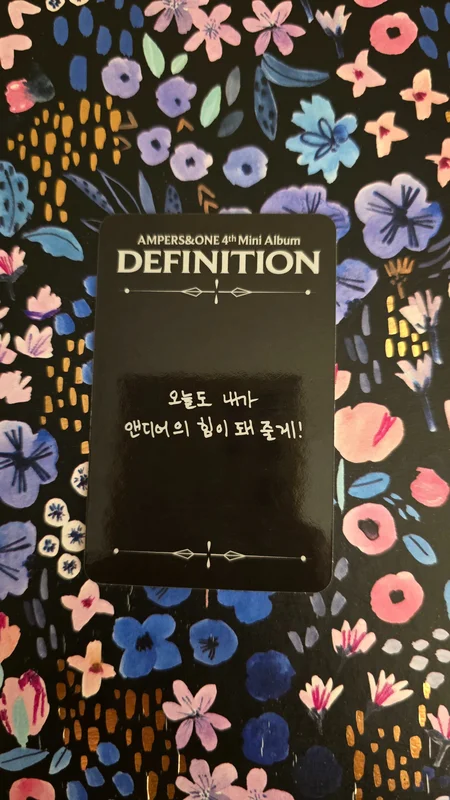 AMPERS&ONE 4th Mini Album
DEFINITION
오늘도 내가
앤디어의 힘이 돼 줄게!